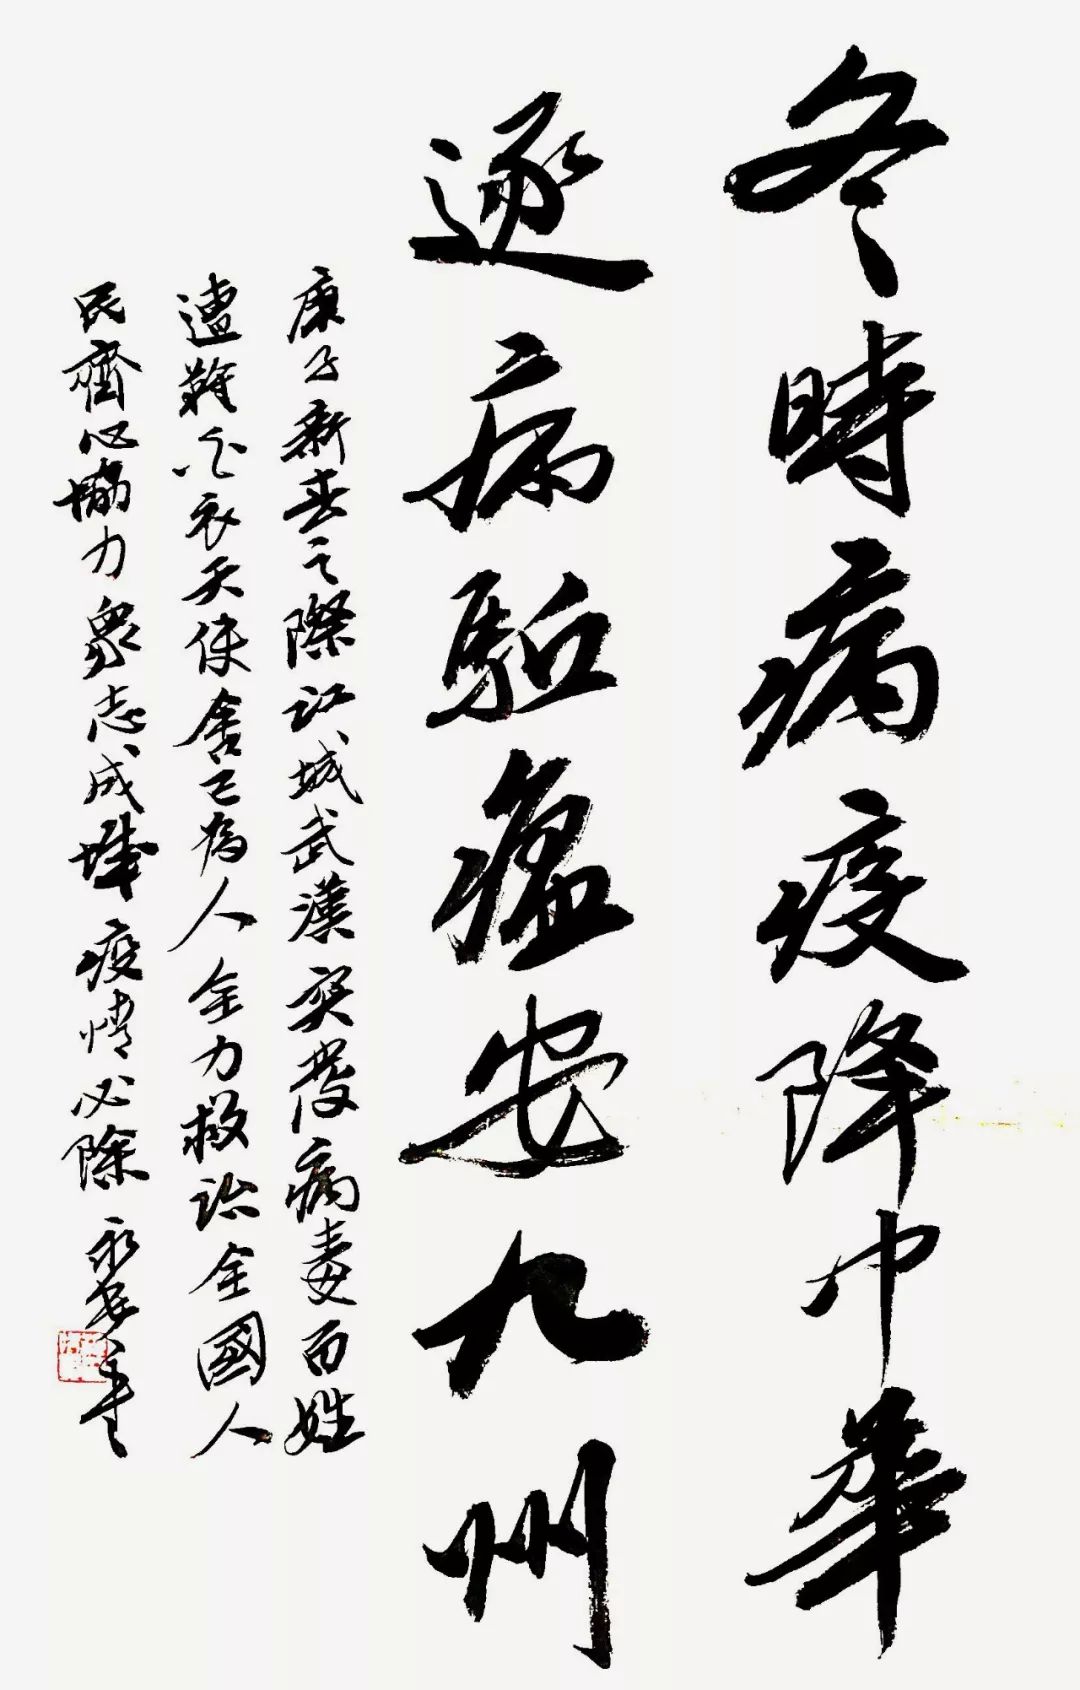 冬時病疫降中華
逐病駈瘟安九州
庚子新春之際江城武漢突發病毒百姓
遭難白衣天使舍己為人全力救治全國人
民齊心協力眾志成城疫情必除 永